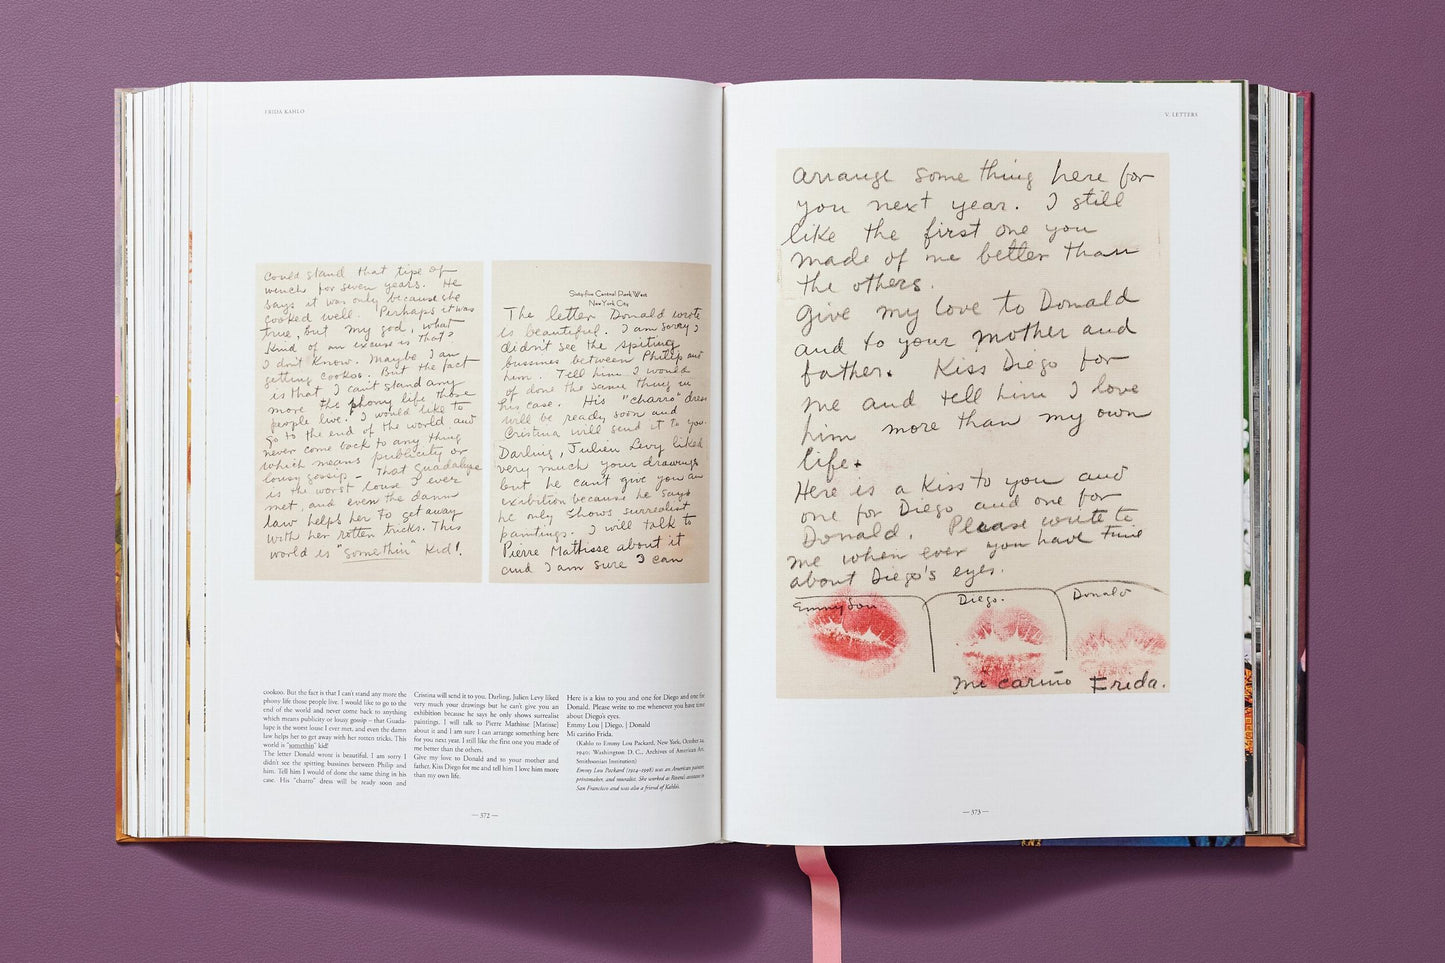 FRIDA KAHLO
could stand that tipe of
wench for seven years. He
says it was only because she
cooked well. Perhaps it was
true, but my god, what
kind of an excuse is that?
I don't know. Maybe I am
getting cookos. But the fact
is that I can't stand any
more the phony life those
people live. I would like to
go to the end of the world and
never come back to any thing
which means publicity or
lousy gossip – That Guadalupe
is the worst louse I ever
met, and even the damn
law helps her to get away
with her rotten tricks. This
world is "somethin" kid!
Sixty-five Central Park West
New York City
The letter Donald wrote
is beautiful. I am sorry I
didn't see the spiting
bussines between Philip and
him. Tell him I would
of done the same thing in
his case. His "charro" dress
will be ready soon and
Cristina will send it to you.
Darling, Julien Levy liked
very much your drawings
but he can't give you an
exibition because he says
he only shows surrealist
paintings. I will talk to
Pierre Mathisse about it
and I am sure I can
cookoo. But the fact is that I can't stand any more the
phony life those people live. I would like to go to the
end of the world and never come back to anything
which means publicity or lousy gossip – that Guada-
lupe is the worst louse I ever met, and even the damn
law helps her to get away with her rotten tricks. This
world is "somethin" kid!
The letter Donald wrote is beautiful. I am sorry I
didn't see the spitting bussines between Philip and
him. Tell him I would of done the same thing in his
case. His "charro" dress will be ready soon and
Cristina will send it to you. Darling, Julien Levy liked
very much your drawings but he can't give you an
exhibition because he says he only shows surrealist
paintings. I will talk to Pierre Mathisse [Matisse]
about it and I am sure I can arrange something here
for you next year. I still like the first one you made of
me better than the others.
Give my love to Donald and to your mother and
father. Kiss Diego for me and tell him I love him more
than my own life.
Here is a kiss to you and one for Diego and one for
Donald. Please write to me whenever you have time
about Diego's eyes.
Emmy Lou | Diego. | Donald
Mi cariño Frida.
(Kahlo to Emmy Lou Packard, New York, October 24,
1940; Washington D. C., Archives of American Art,
Smithsonian Institution)
Emmy Lou Packard (1914–1998) was an American painter,
printmaker, and muralist. She worked as Rivera's assistant in
San Francisco and was also a friend of Kahlo's.
— 372 —
V. LETTERS
arrange some thing here for
you next year. I still
like the first one you
made of me better than
the others.
Give my love to Donald
and to your mother and
father. Kiss Diego for
me and tell him I love
him more than my own
life.
Here is a kiss to you and
one for Diego and one for
Donald. Please write to
me when ever you have time
about Diego's eyes.
Emmy Lou
Diego.
Donald
Mi cariño Frida.
— 373 —